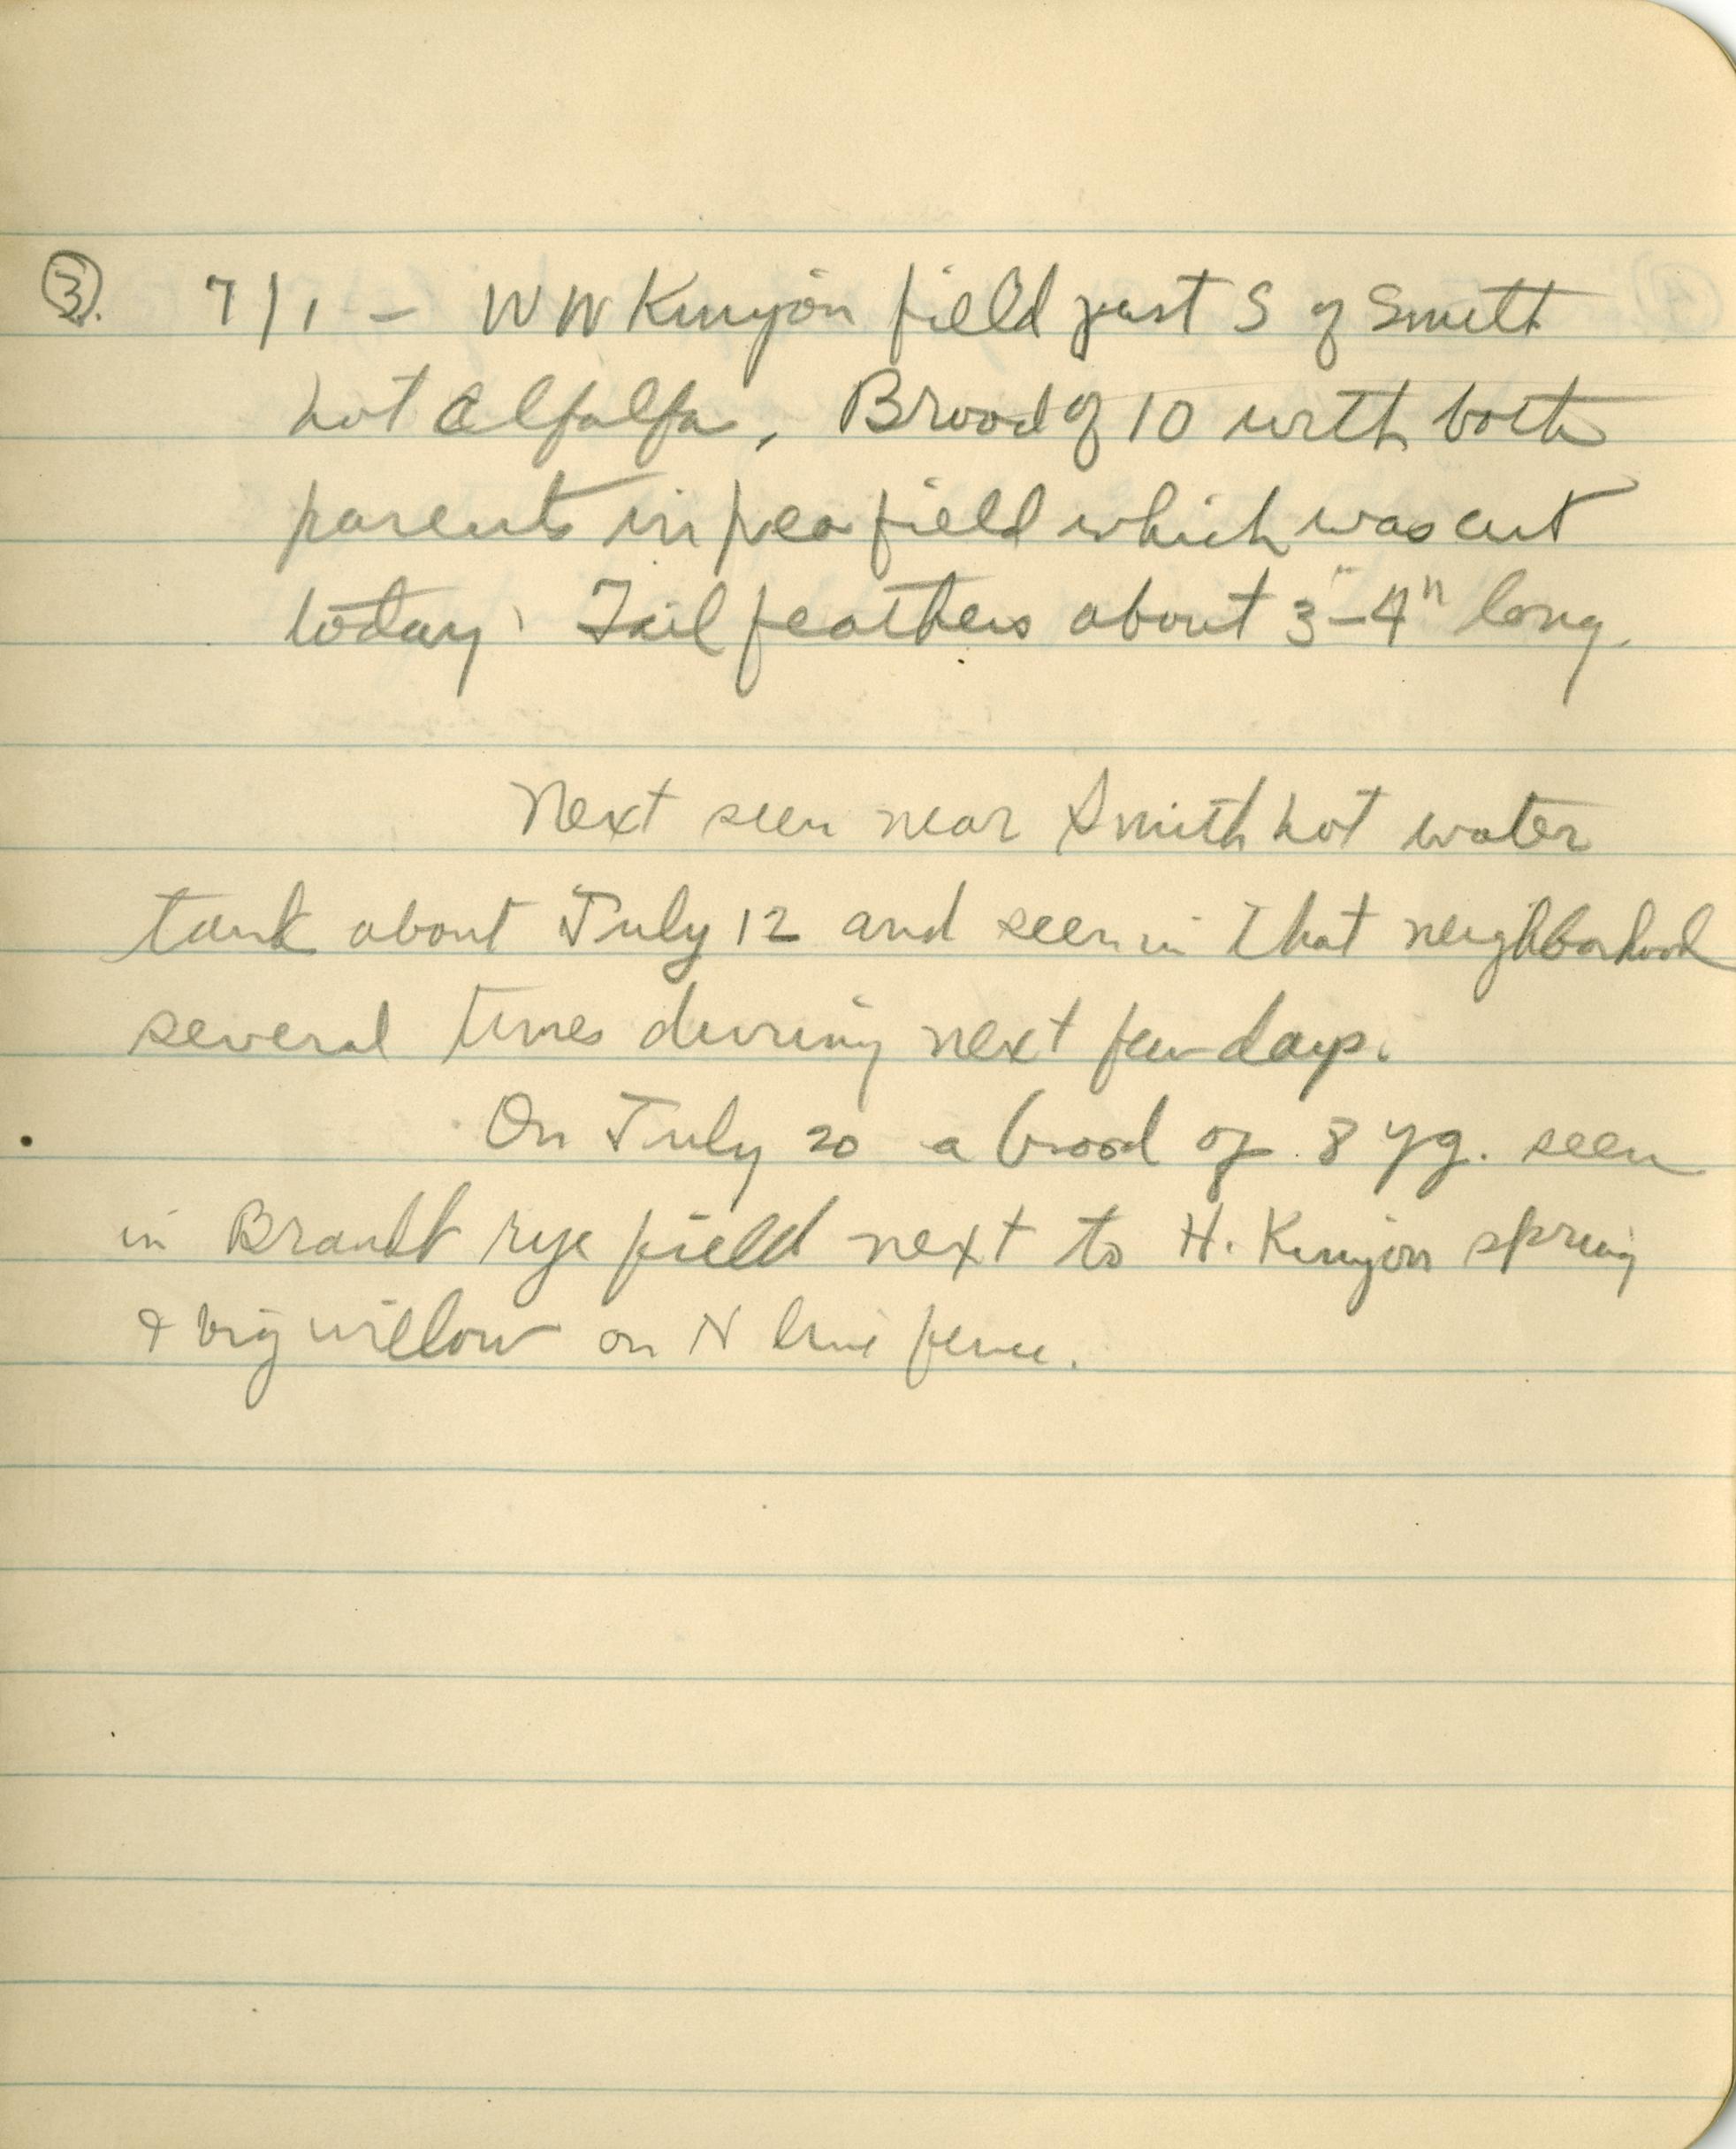 ③. 7/1 - WW Kinyon field just S of Smith
hot Alfalfa. Brood of 10 with both
parents in pea field which was cut
today. Tail feathers about 3"-4" long.
Next seen near Smith hot water
tank about July 12 and seen in that neighborhood
several times during next few days.
On July 20 a brood of 8 yg. seen
in Brandt rye field next to H. Kinyon spring
& big willow on N line fence.